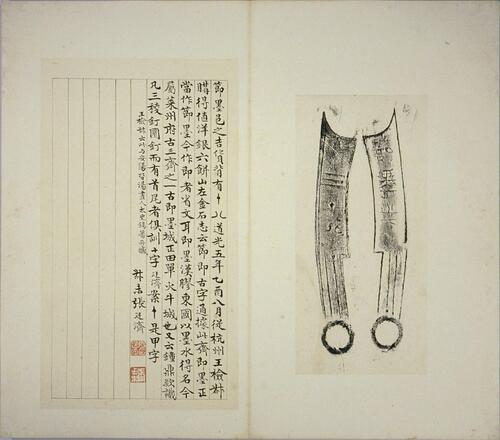 節墨邑之吉貨背有八道光五年乙酉八月從杭州王檢叔
購得值洋銀六餅山左金石志云節即古字通據此齊即墨正
當作節墨今作即者省文耳即墨漢膠東國以墨水得名今
屬萊州府古三齊之一古即墨城正田單火牛城也又云鐘鼎款識
凡三稜釘圓釘而有首尾者俱訓十字廷濟案是甲字
王檢叔云此
叔未張廷濟